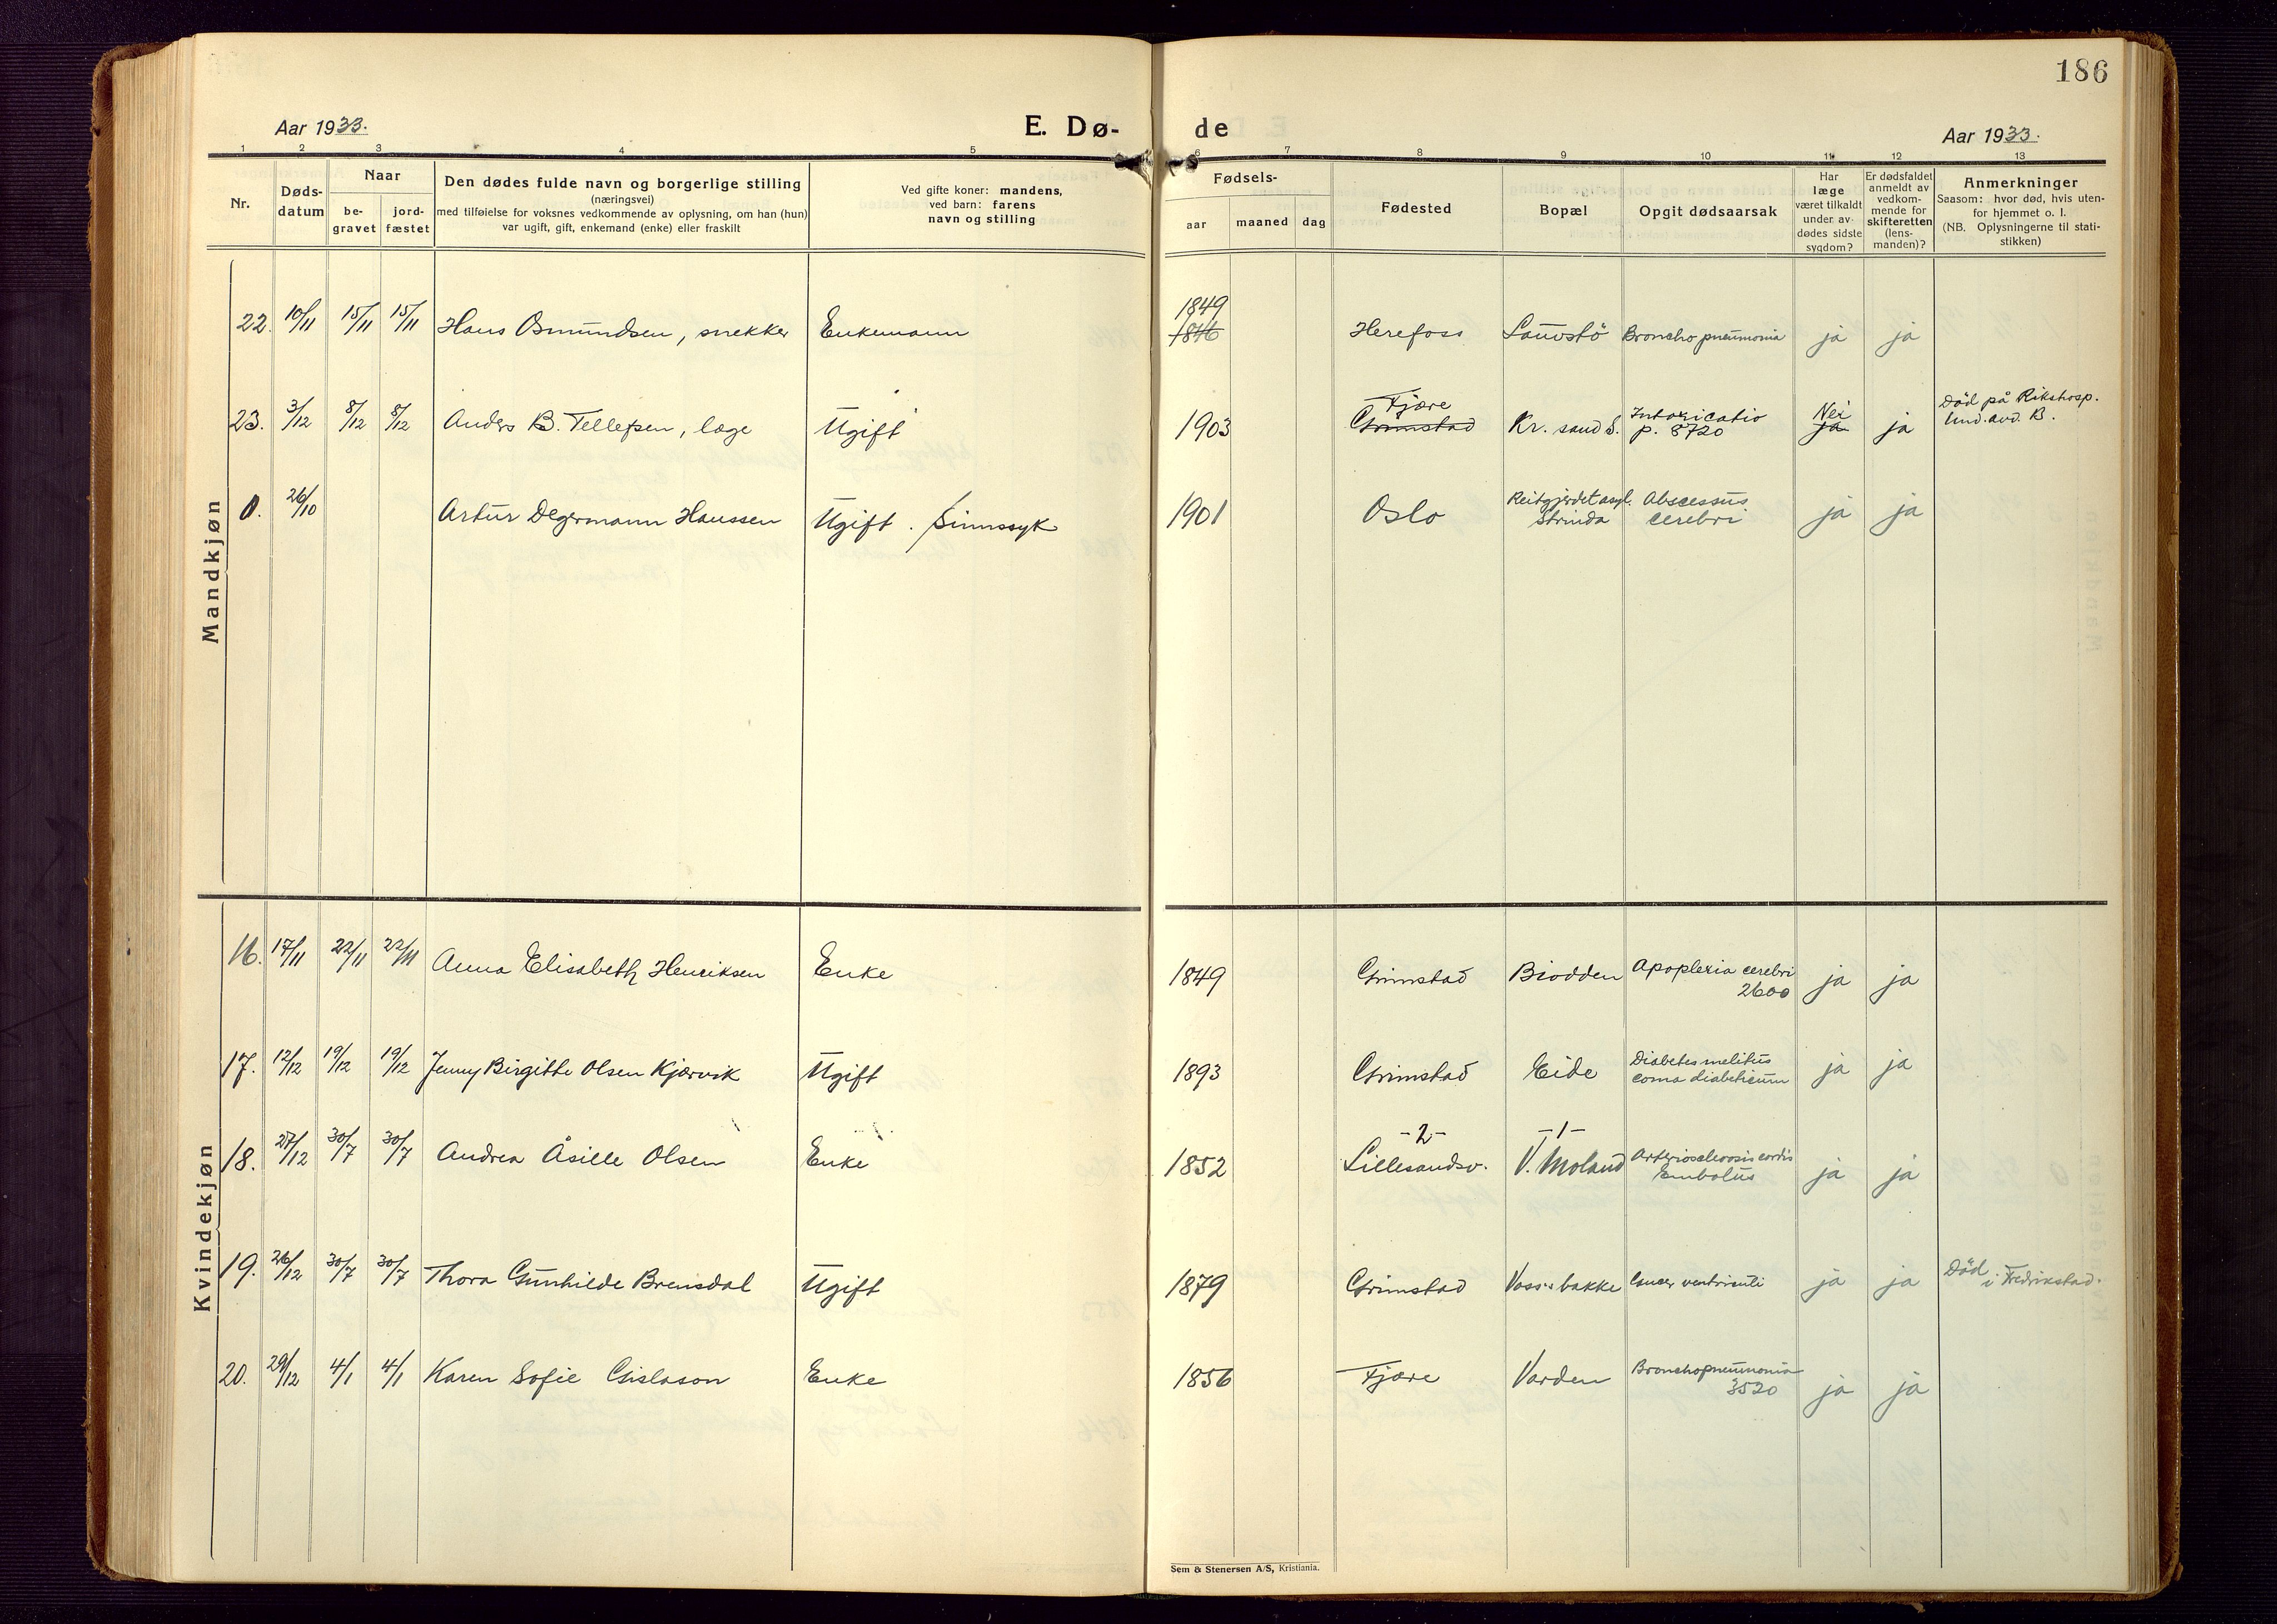 186
Aar 1933.
E. Dø-
de
Aar 1933.
1 2 3 4 5 6 7 8 9 10 11 12 13
Nr.
Døds-
datum
Naar
be-
gravet
jord-
fæstet
Den dødes fulde navn og borgerlige stilling
(næringsvei)
med tilføielse for voksnes vedkommende av oplysning, om han (hun)
var ugift, gift, enkemand (enke) eller fraskilt
Ved gifte koner: mandens,
ved barn: farens
navn og stilling
Fødsels-
aar
maaned
dag
Fødested
Bopæl
Opgit dødsaarsak
Har
læge
været tilkaldt
under av-
dødes sidste
sygdom?
Er dødsfaldet
anmeldt av
vedkom-
mende for
skifteretten
(lens-
manden)?
Anmerkninger
Saasom: hvor død, hvis uten-
for hjemmet o. l.
(NB. Oplysningerne til stati-
stikken)
Mandkjøn
22. 10/11 15/11 15/11 Hans Osmundsen, snekker Enkemann 1849
1846 Herefoss Sauvstö Broncho pneumonia ja ja
23. 3/12 8/12 8/12 Anders B. Tellefsen, læge Ugift 1903 Fjære
Grimstad Kr. sand S. Intoxicatio
p. 8720 Nei
ja ja Död på Rikshosp.
Und. avd. B.
0. 26/10 Artur Degermann Hanssen Ugift. Sinnssyk 1901 Oslo Reitgjerdet asyl.
Strinda Abscessus
cerebri ja ja
Kvindekjøn
16. 17/11 22/11 22/11 Anna Elisabeth Henriksen Enke 1849 Grimstad Biodden Apoplexia cerebri
2600 ja ja
17. 12/12 19/12 19/12 Jenny Birgitte Olsen Kjørvik Ugift 1893 Grimstad Eide Diabetes melitus
coma diabeticum ja ja
18. 27/12 30/7 30/7 Andrea Åsille Olsen Enke 1852 -2-
Lillesandsv. -1-
V. Moland Arteriosclerosis cordis
Embolus ja ja
19. 26/12 30/7 30/7 Thora Gunhilde Brensdal Ugift 1879 Grimstad Voss:s bakke Cancer ventriculi ja ja Död
i Fredrikstad.
20. 29/12 4/1 4/1 Karen Sofie Gislason Enke 1856 Fjære Varden Bronchopneumonia
3520 ja ja
Sem & Stenersen A/S, Kristiania.